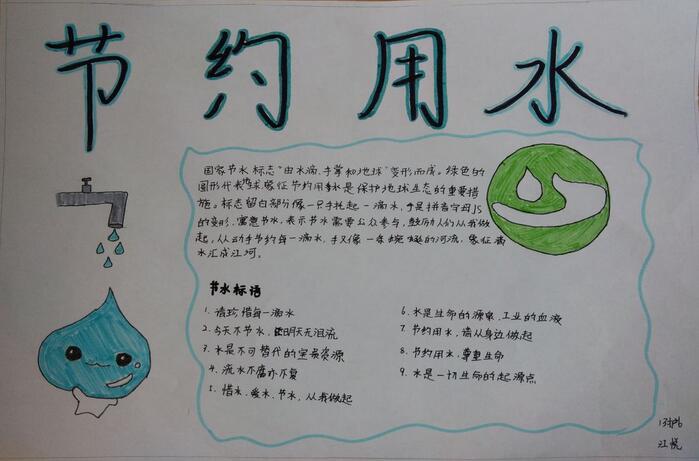 节约用水
国家节水标志"由水滴,手掌和地球"变形而成。绿色的
圆形代表地球,象征节约用水是保护地球生态的重要措
施。标志留白部分像一只手托起一滴水,手是拼音字母JS
的变形,寓意节水,表示节水需要公众参与,鼓励人们从我做
起,从动手节约每一滴水,手又像一条蜿蜒的河流,象征滴
水汇成江河。
节水标语
1. 请珍惜每一滴水
2. 今天不节水,明天无泪流
3. 水是不可替代的宝贵资源
4. 流水不腐亦不复
5. 惜水、爱水、节水,从我做起
6. 水是生命的源泉、工业的血液
7. 节约用水,请从身边做起
8. 节约用水,尊重生命
9. 水是一切生命的起源点
江悦